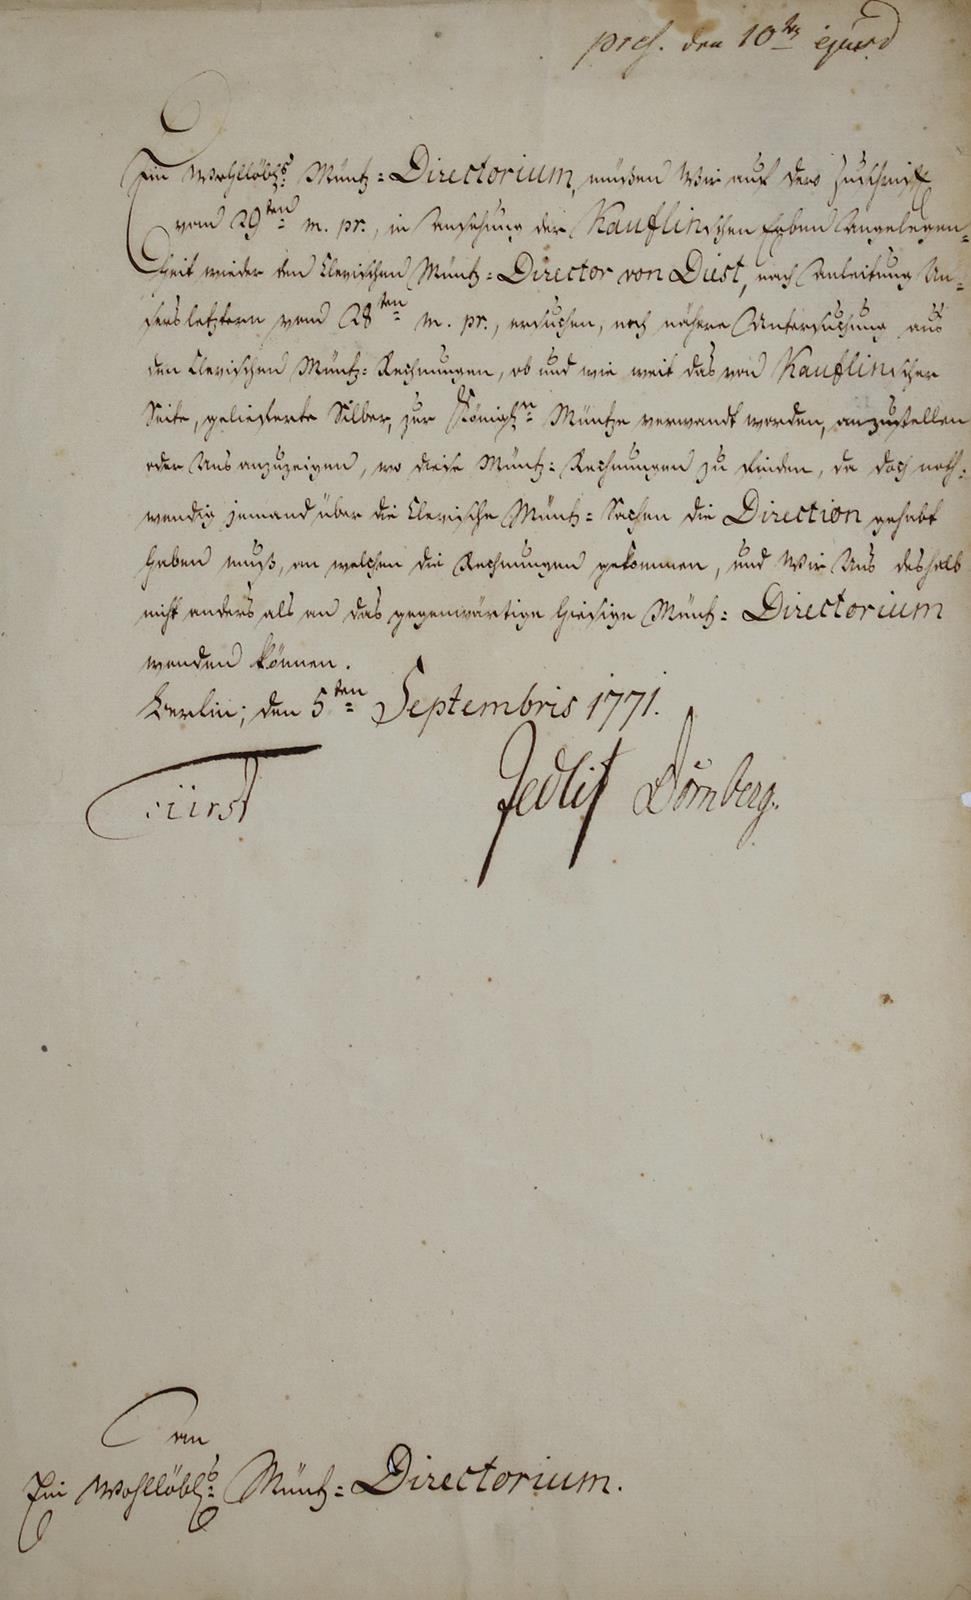 pres. den 10ten ejusd
Ein Wohllöbs. Müntz=Directorium, müßen Wir auf dero Zuschrift
vom 29ten m. pr., in Ansehung der Kauflinschen Erben Angelegen=
heit wieder den Clevischen Müntz=Director von Diest, nach Anleitung Un=
sers letztern vom 28ten m. pr., ersuchen, noch nähere Untersuchung aus
den Clevischen Müntz=Rechnungen, ob und wie weit das von Kauflinscher
Seite, gelieferte Silber, zur Königln Müntze verwandt worden, anzustellen
oder Uns anzuzeigen, wo diese Müntz=Rechnungen zu finden, da doch noth=
wendig jemand über die Clevische Müntz=Sachen die Direction gehabt
haben muß, an welchen die Rechnungen gekommen, und Wir Uns deshalb
nicht anders als an das gegenwärtige hiesige Müntz=Directorium
wenden können.
Berlin; den 5ten Septembris 1771.
Fürst Zedlitz Dörnberg.
An
Ein Wohllöbl. Müntz=Directorium.